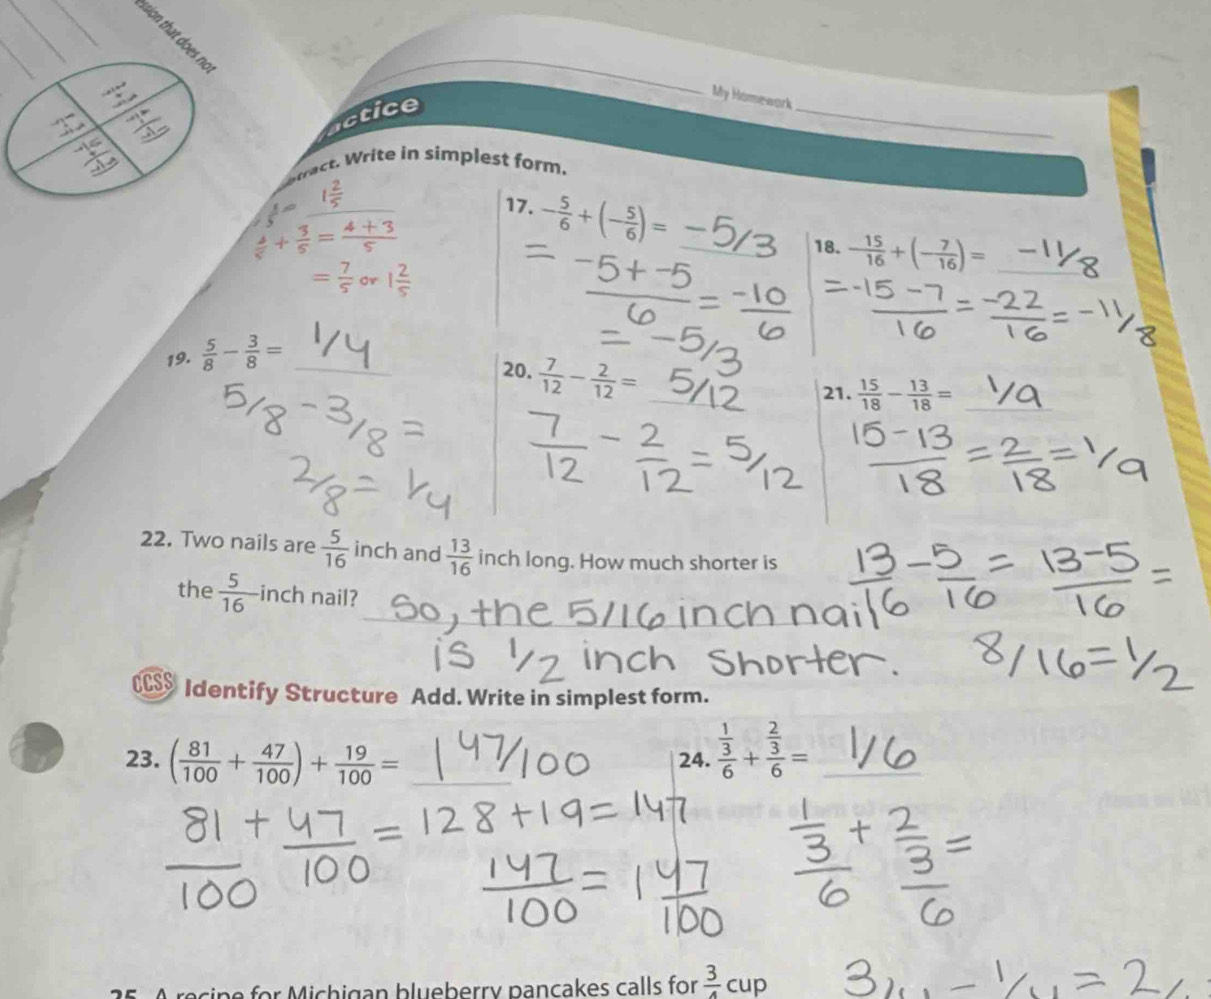 ssion that does not
My Homework
actice
tract. Write in simplest form.
= 1 2/5
4/5 + 3/5 = 4 + 3/5
= 7/5 or 1 2/5
17. -5/6 + (-5/6) = -5/3
= -5 + -5/6 = -10/6
= -5/3
18. -15/16 + (-7/16) = -11/8
= -15 - 7/16 = -22/16 = -11/8
19. 5/8 - 3/8 = 1/4
5/8 - 3/8 =
2/8 = 1/4
20. 7/12 - 2/12 = 5/12
7/12 - 2/12 = 5/12
21. 15/18 - 13/18 = 1/9
15 - 13/18 = 2/18 = 1/9
22. Two nails are 5/16 inch and 13/16 inch long. How much shorter is
the 5/16-inch nail? So, the 5/16 inch nail
is 1/2 inch shorter.
13/16 - 5/16 = 13 - 5/16 =
8/16 = 1/2
CCSS Identify Structure Add. Write in simplest form.
23. (81/100 + 47/100) + 19/100 = 1 47/100
81/100 + 47/100 = 128 + 19 = 147
147/100 = 1 47/100
24. 1/3/6 + 2/3/6 = 1/6
1/3/6 + 2/3/6 =
25. A recipe for Michigan blueberry pancakes calls for 3/4 cup